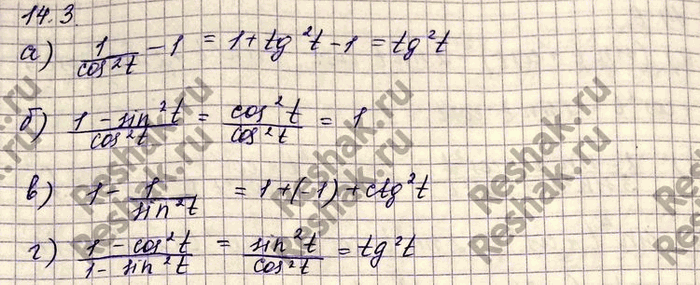 14.3
а) 1/cos²t − 1 = 1 + tg²t − 1 = tg²t
б) 1 − sin²t/cos²t = cos²t/cos²t = 1
в) 1 − 1/sin²t = 1 + (−1) + ctg²t
г) 1 − cos²t/1 − sin²t = sin²t/cos²t = tg²t
Reshak.ru
Reshak.ru
Reshak.ru
Reshak.ru
Reshak.ru
Reshak.ru